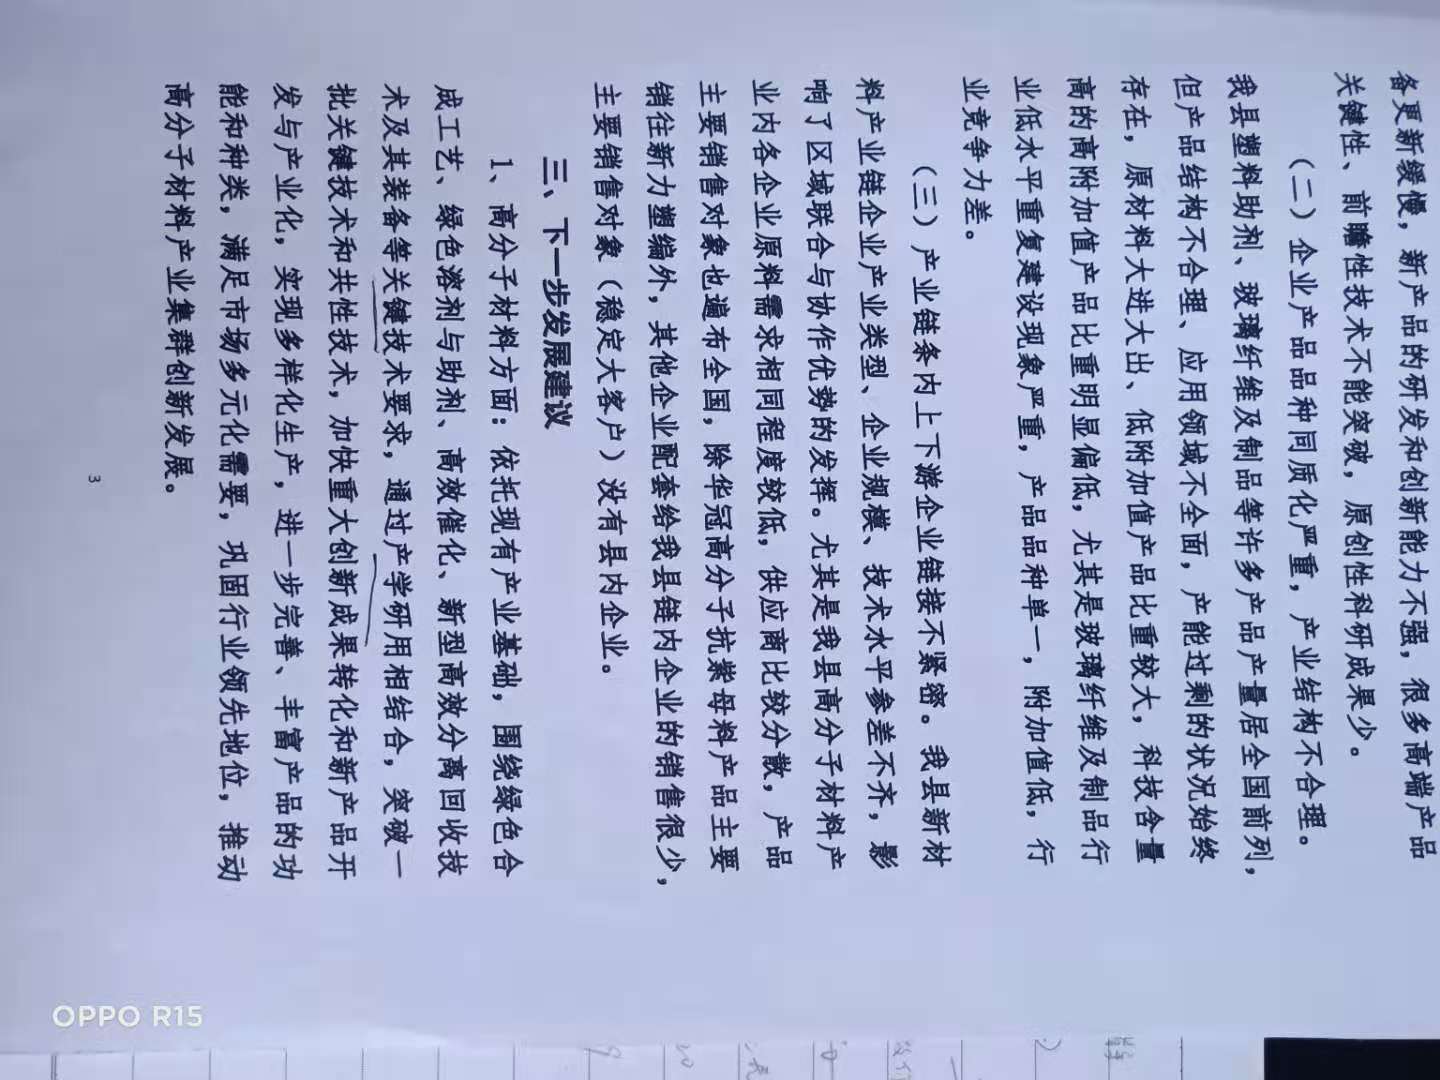 备更新缓慢，新产品的研发和创新能力不强，很多高端产品
关键性、前瞻性技术不能突破，原创性科研成果少。
（二）企业产品品种同质化严重，产业结构不合理。
我县塑料助剂、玻璃纤维及制品等许多产品产量居全国前列，
但产品结构不合理、应用领域不全面，产能过剩的状况始终
存在，原材料大进大出、低附加值产品比重较大，科技含量
高的高附加值产品比重明显偏低，尤其是玻璃纤维及制品行
业低水平重复建设现象严重，产品品种单一，附加值低，行
业竞争力差。
（三）产业链条内上下游企业链接不紧密。我县新材
料产业链企业产业类型、企业规模、技术水平参差不齐，影
响了区域联合与协作优势的发挥。尤其是我县高分子材料产
业内各企业原料需求相同程度较低，供应商比较分散，产品
主要销售对象也遍布全国，除华冠高分子抗紫母料产品主要
销往新力塑编外，其他企业配套给我县链内企业的销售很少，
主要销售对象（稳定大客户）没有县内企业。
三、下一步发展建议
1、高分子材料方面：依托现有产业基础，围绕绿色合
成工艺、绿色溶剂与助剂、高效催化、新型高效分离回收技
术及其装备等关键技术要求，通过产学研用相结合，突破一
批关键技术和共性技术，加快重大创新成果转化和新产品开
发与产业化，实现多样化生产，进一步完善、丰富产品的功
能和种类，满足市场多元化需要，巩固行业领先地位，推动
高分子材料产业集群创新发展。
3
OPPO R15